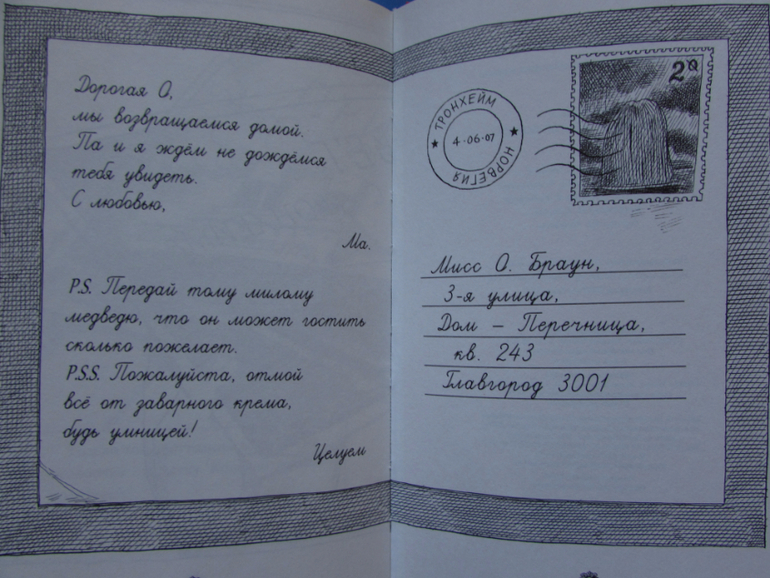 Дорогая О,
мы возвращаемся домой.
Па и я ждём не дождёмся
тебя увидеть.
С любовью,
Ма.
P.S. Передай тому милому
медведю, что он может гостить
сколько пожелает.
P.S.S. Пожалуйста, отмой
всё от заварного крема,
будь умницей!
Целуем
ТРОНХЕЙМ
4-06-07
НОРВЕГИЯ
2
Мисс О. Браун,
3-я улица,
Дом – Перечница,
кв. 243
Главгород 3001